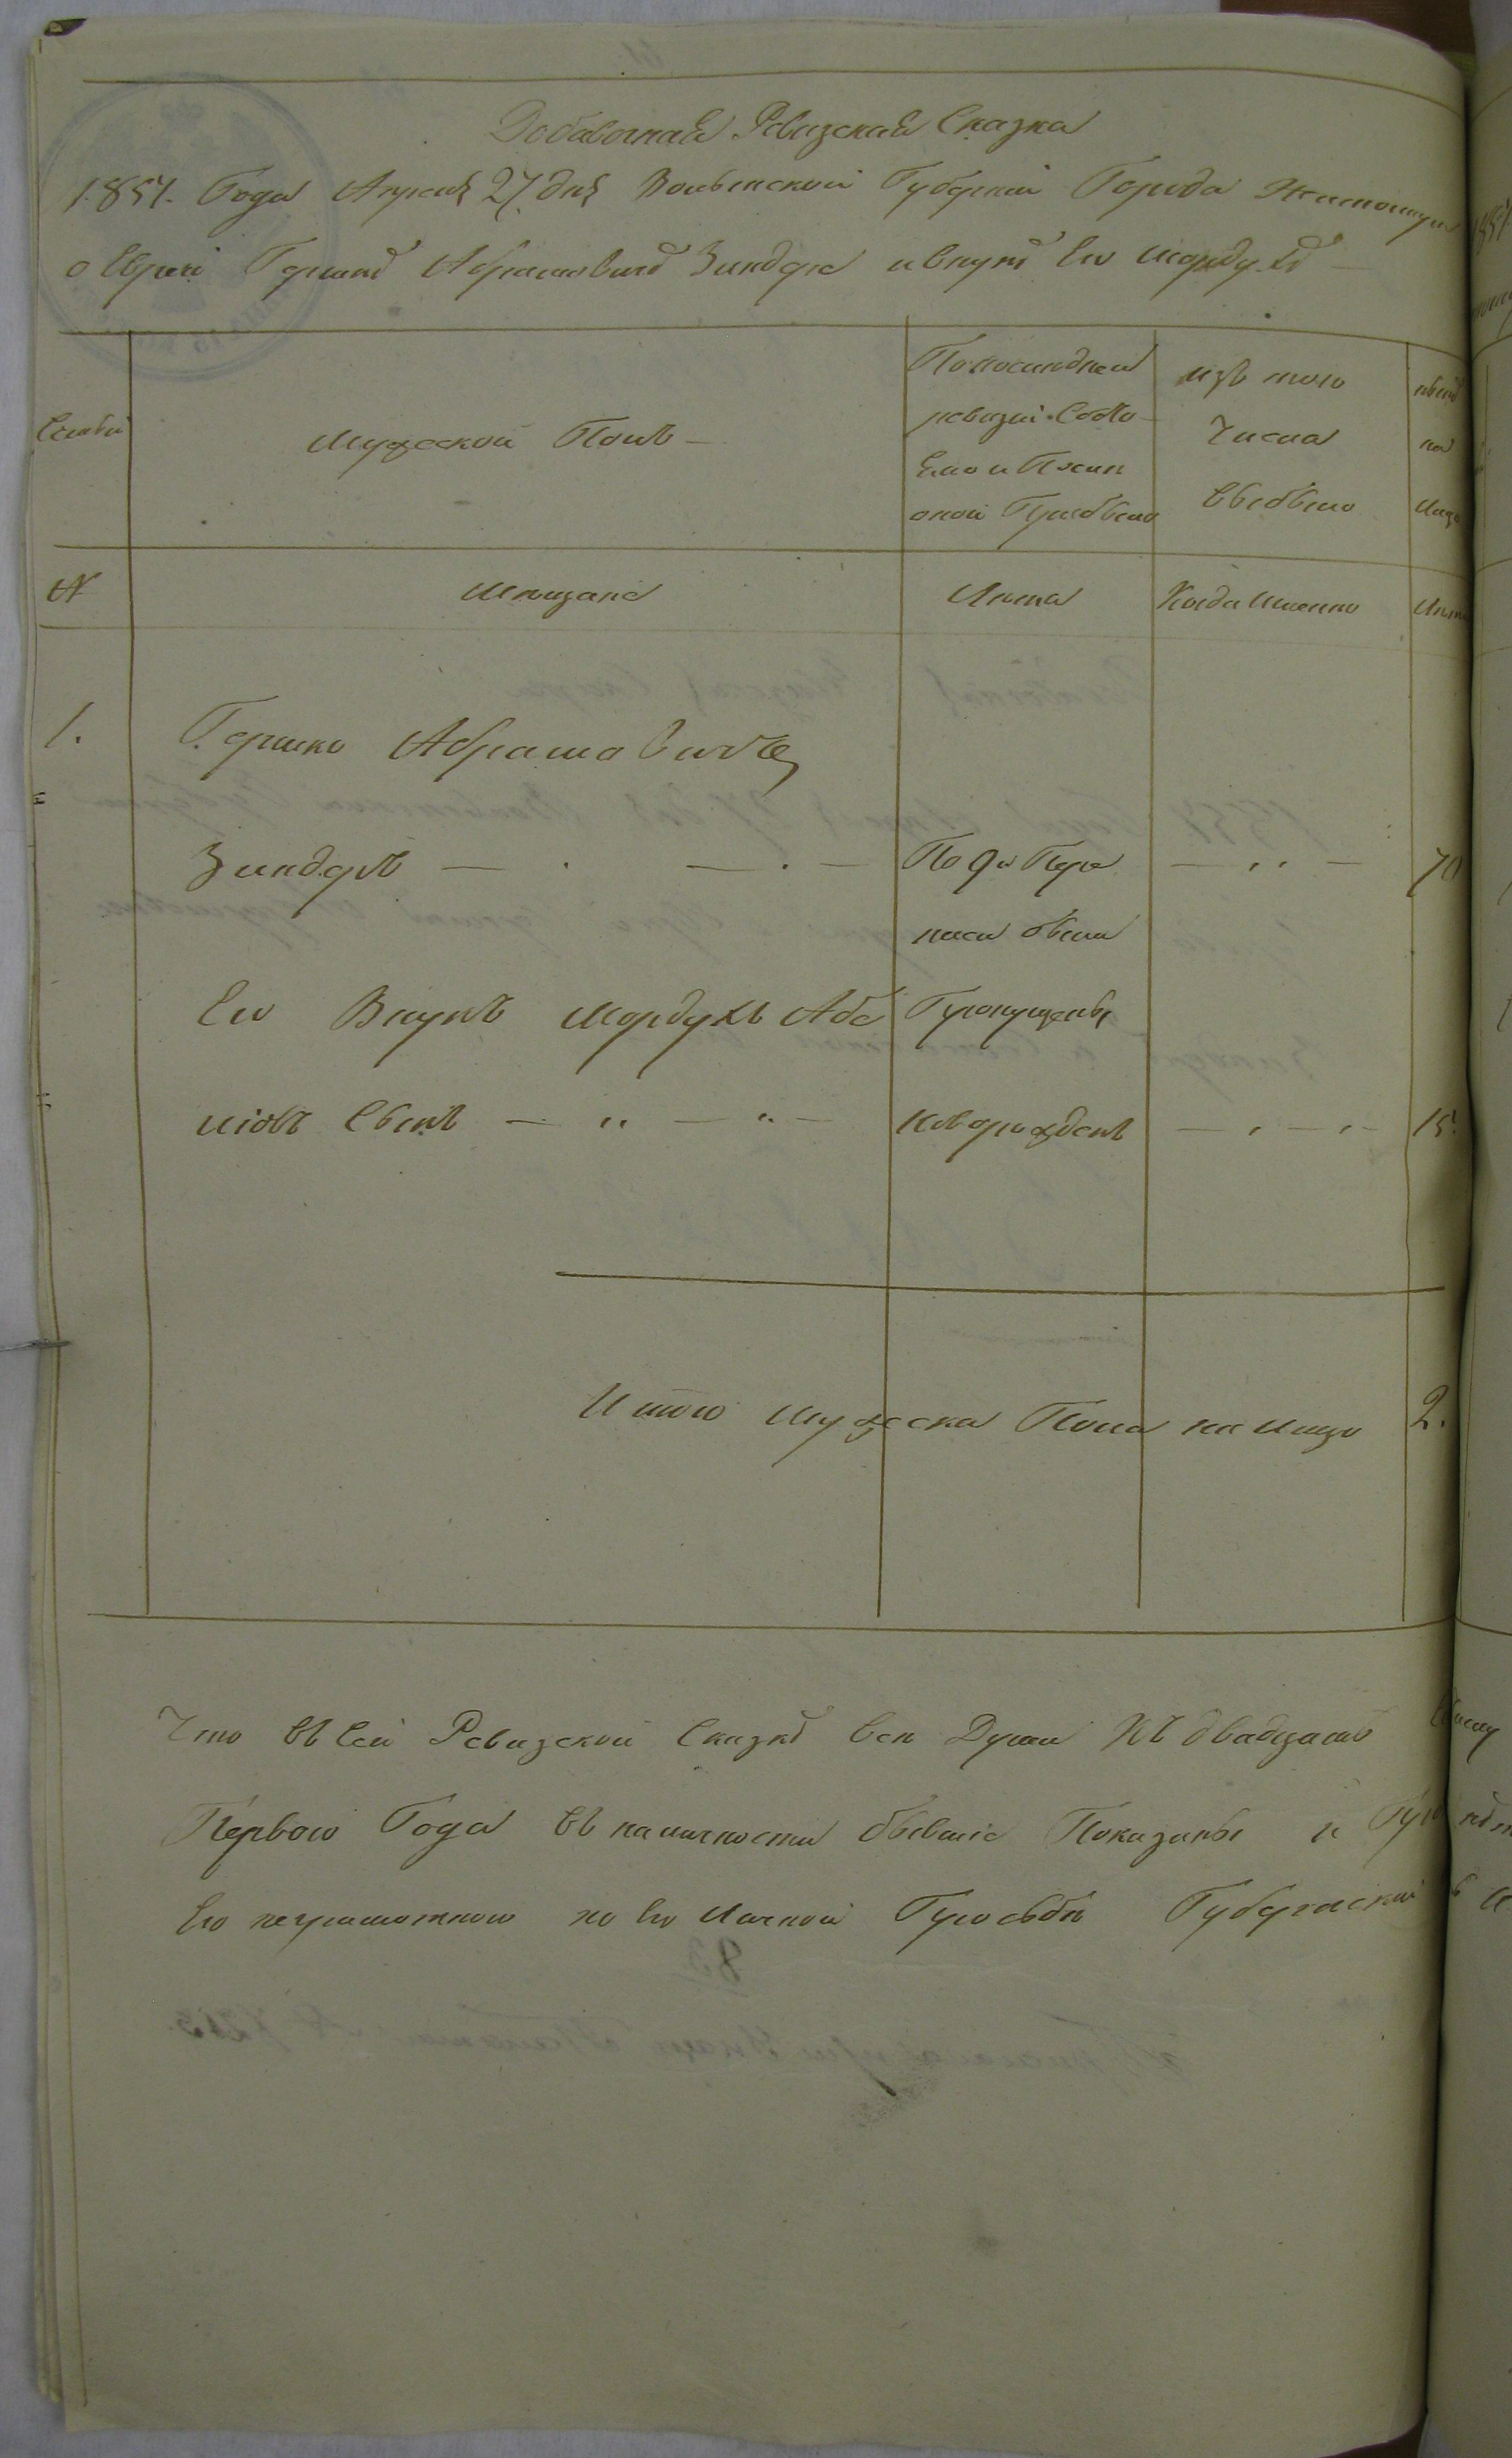 Добавочная Ревизская Сказка
1857. Года Апреля 27 дня Волынской Губернии Города Житомира
о Евреи Гершкѣ Абрамовичѣ Зиндере и внукѣ Его Мордухѣ
Семьи
Мужеской Полъ
По последней
ревизии Состо
яло и После
оной Прибыло
изъ того
Числа
Выбыло
нынѣ
на
лицо
№
Мещане
Лета
Когда Именно
Лета
1.
Гершко Абрамовичъ
Зиндеръ
По 9й Пере
70
писи были
Его Внукъ Мордухъ Абе
Пропущены
новорожденъ
15.
Итого мужеска Пола на лицо
2.
Что въ сей Ревизской Сказке все Души Къ двадцать
Первого Года въ наличности бывшие Показаны и
Его неграмотного по Его Личной Прозьбѣ Губернский